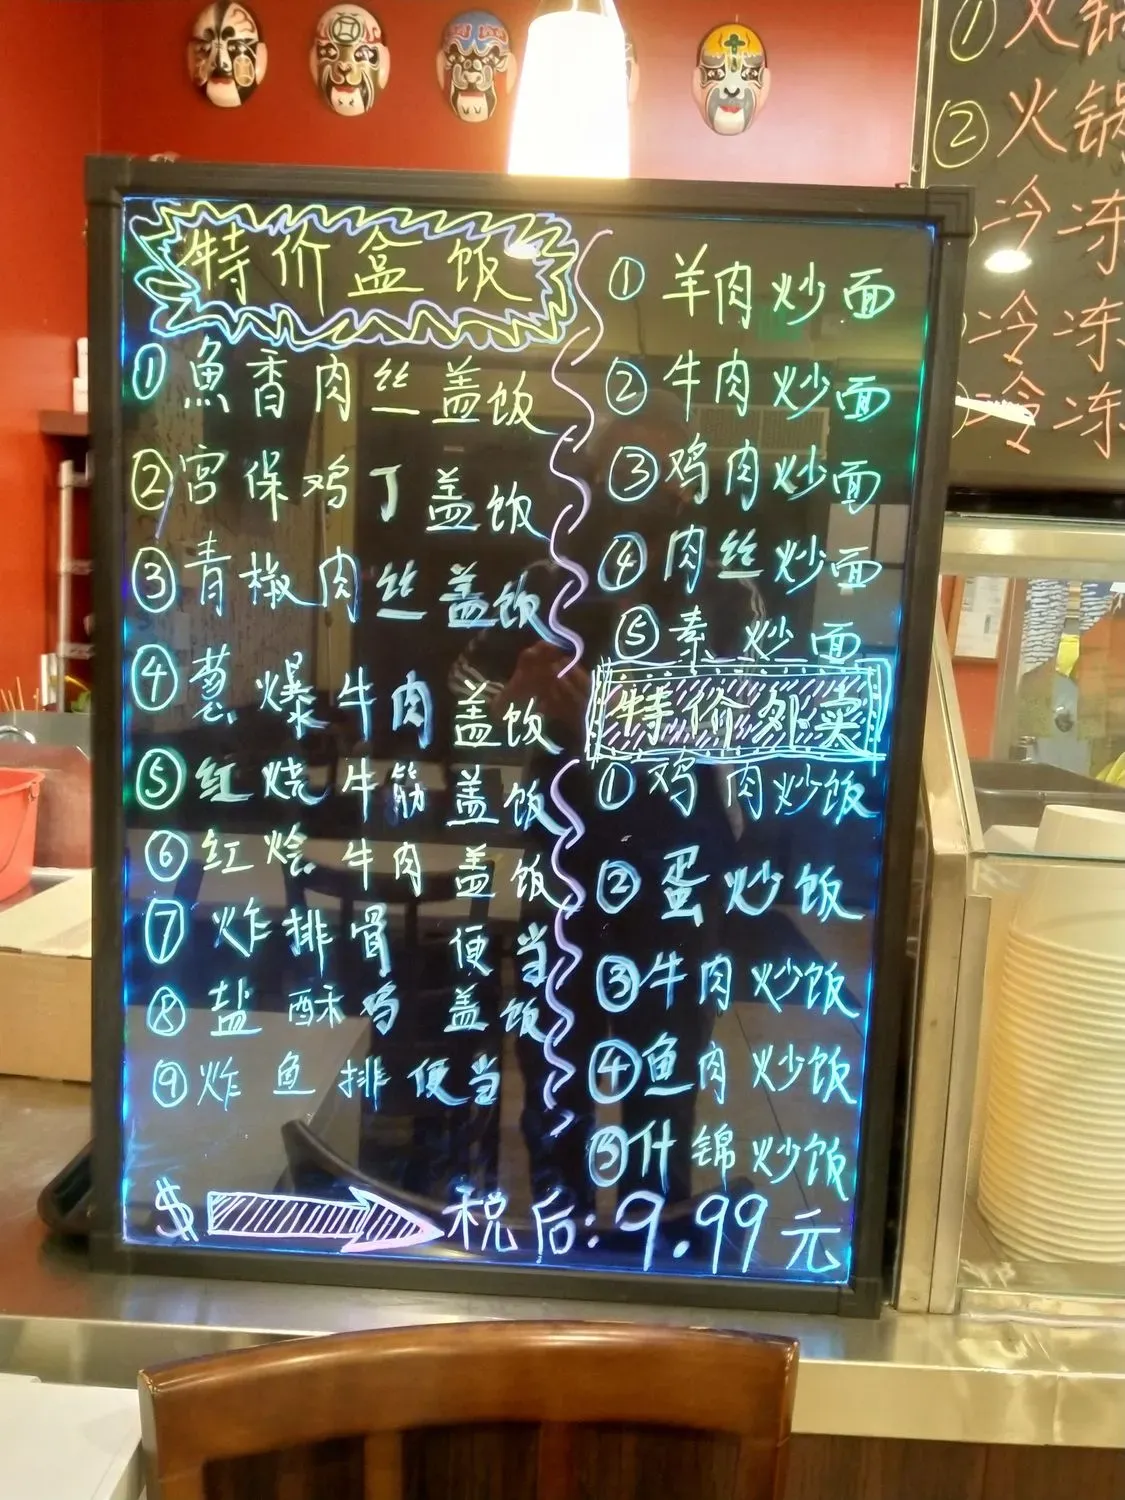 特价盒饭
① 魚香肉丝盖饭
② 宫保鸡丁盖饭
③ 青椒肉丝盖饭
④ 葱爆牛肉盖饭
⑤ 红烧牛筋盖饭
⑥ 红烩牛肉盖饭
⑦ 炸排骨便当
⑧ 盐酥鸡盖饭
⑨ 炸鱼排便当
① 羊肉炒面
② 牛肉炒面
③ 鸡肉炒面
④ 肉丝炒面
⑤ 素炒面
特价外卖
① 鸡肉炒饭
② 蛋炒饭
③ 牛肉炒饭
④ 鱼肉炒饭
⑤ 什锦炒饭
$ 税后:9.99元
① 火锅
② 火锅
冷冻
冷冻
冷冻